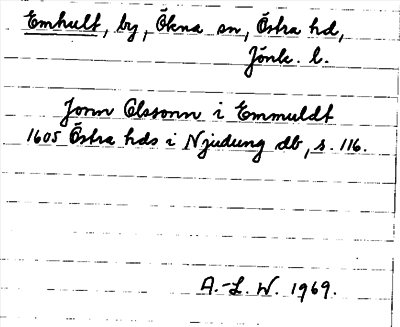 Emhult, by, Ökna sn, Östra hd,
Jönk. l.
Jonn Olssonn i Emmuldt
1605 Östra hds i Njudung db, s. 116.
A.-L. W. 1969.